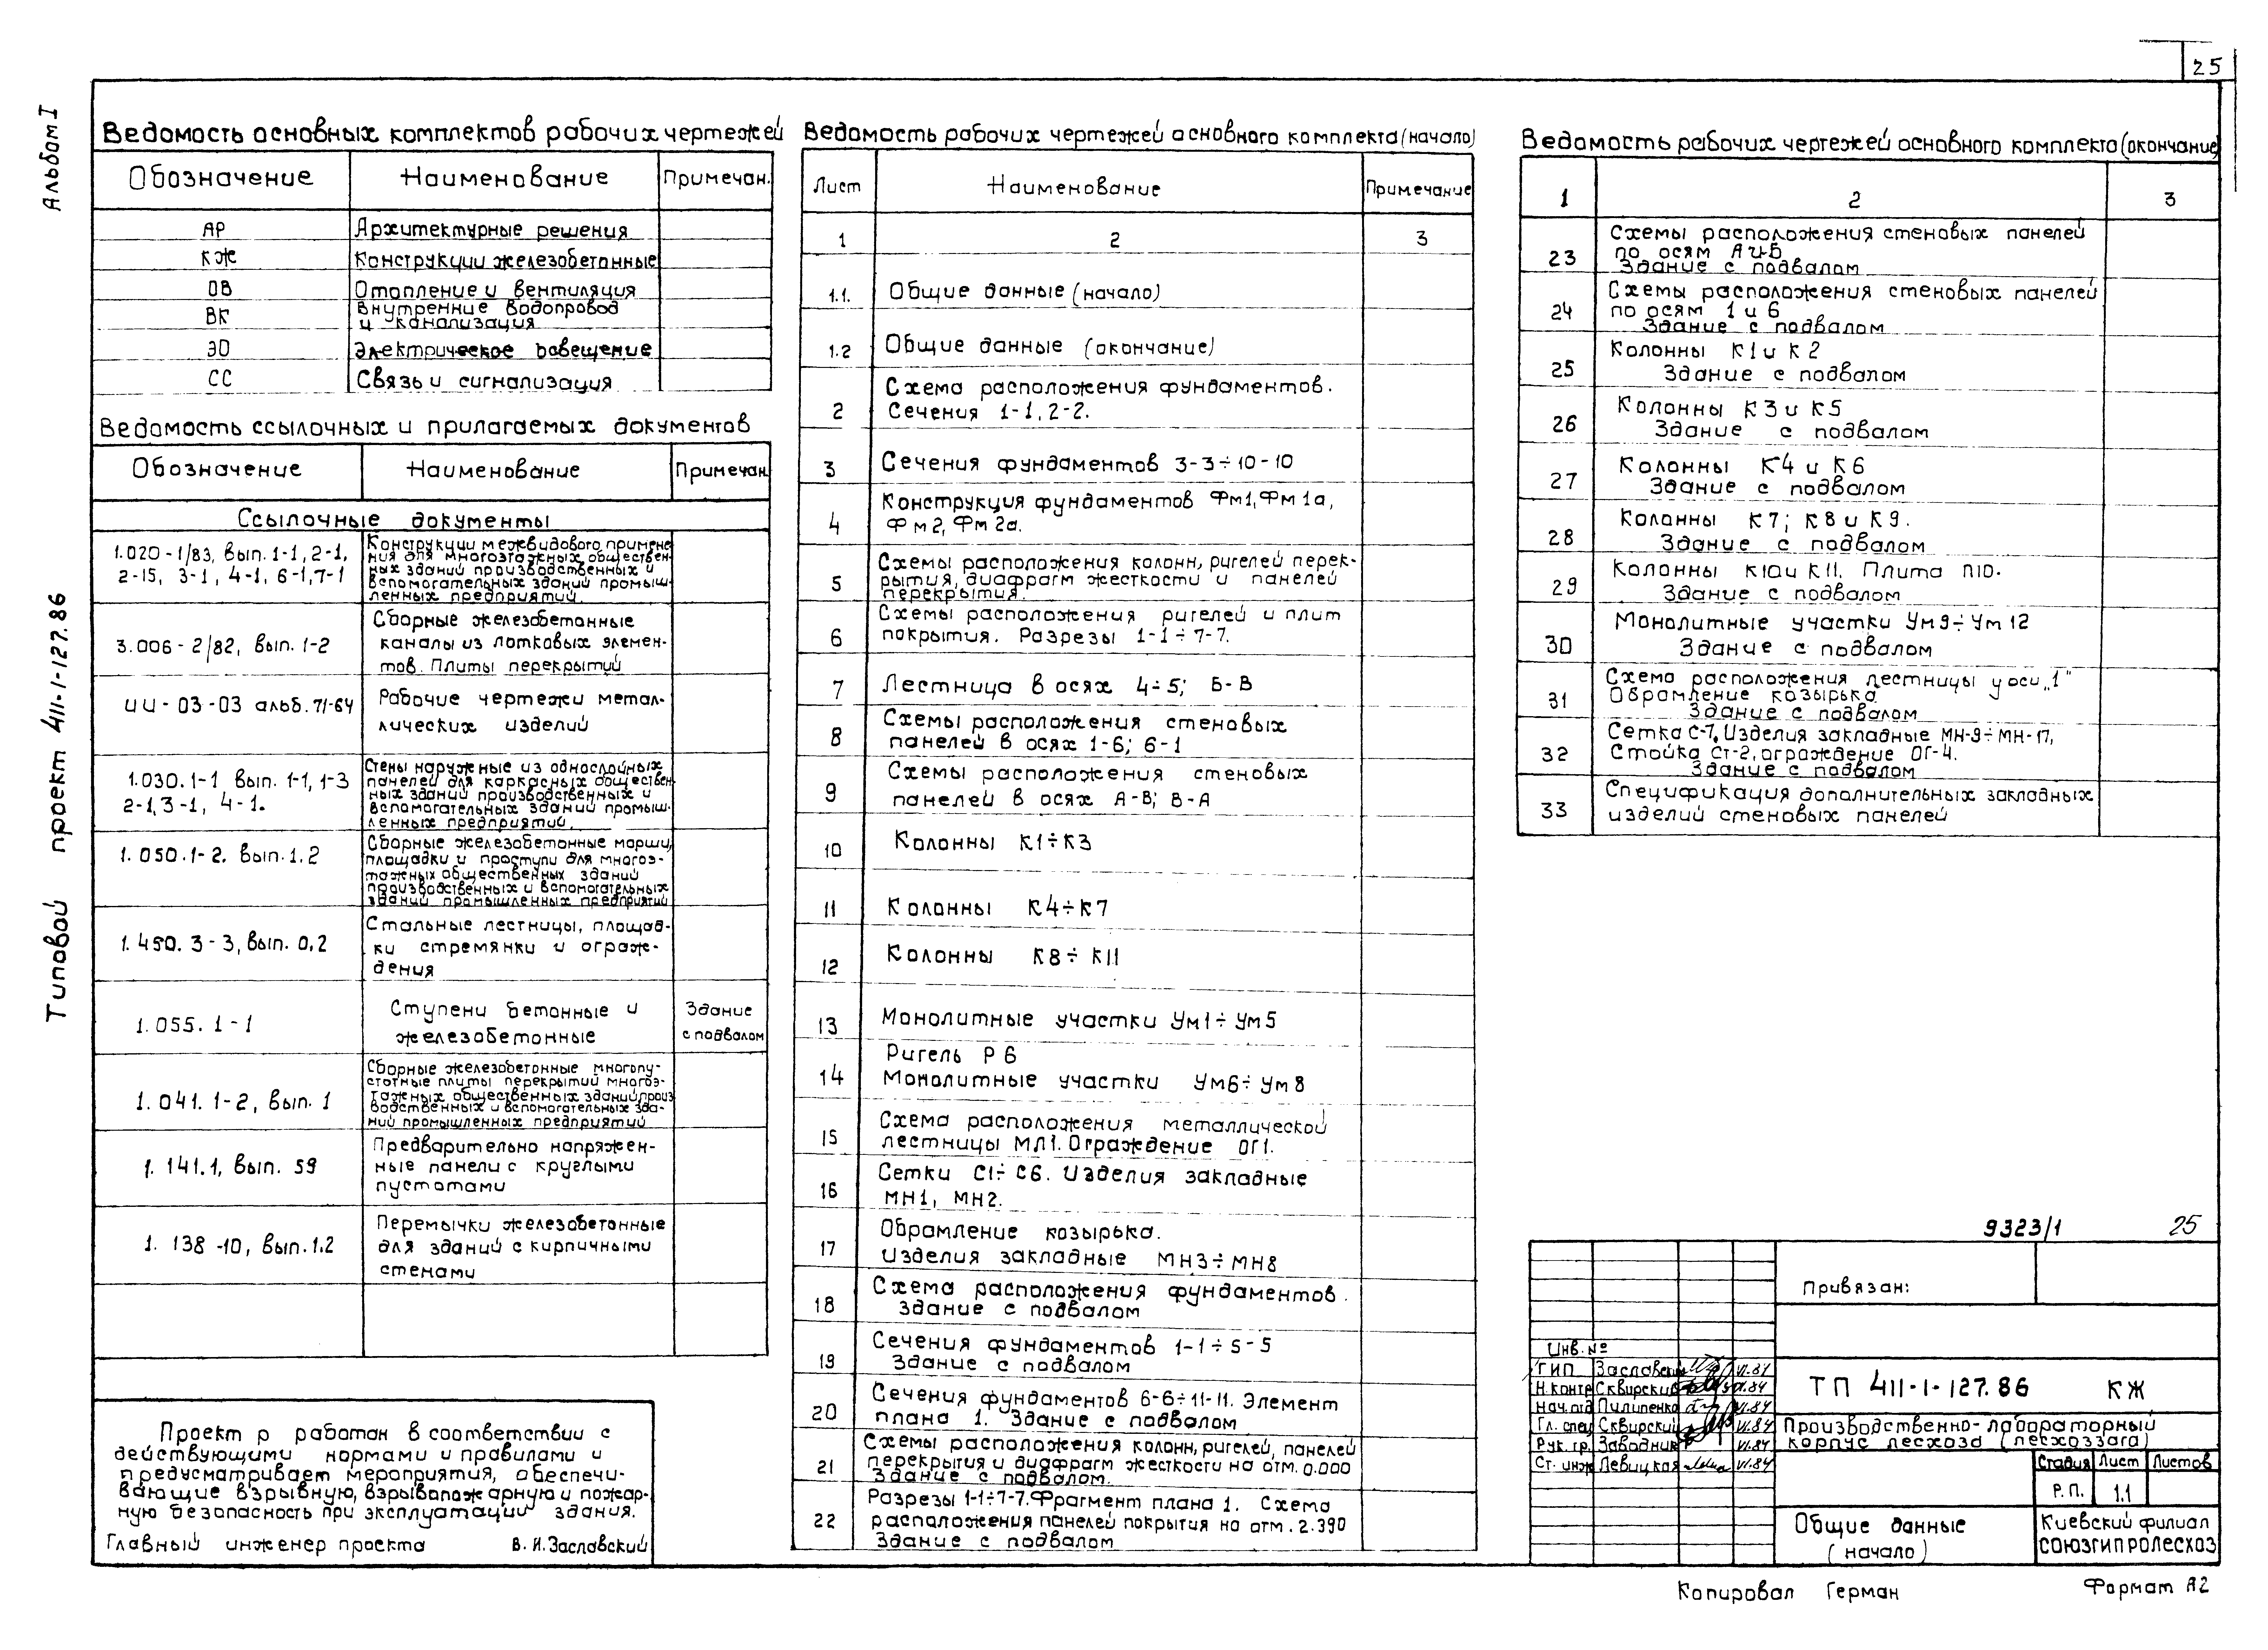 25
Альбом I
Типовой проект 411-1-127.86
Ведомость основных комплектов рабочих чертежей
Обозначение Наименование Примечан.
АР Архитектурные решения
КЖ Конструкции железобетонные
ОВ Отопление и вентиляция
ВК Внутренние водопровод
и канализация
ЭО Электрическое освещение
СС Связь и сигнализация
Ведомость ссылочных и прилагаемых документов
Обозначение Наименование Примечан.
Ссылочные документы
1.020-1/83, вып. 1-1, 2-1,
2-15, 3-1, 4-1, 6-1, 7-1
Конструкции межвидового примене-
ния для многоэтажных обществен-
ных зданий производственных и
вспомогательных зданий промыш-
ленных предприятий.
3.006-2/82, вып. 1-2
Сборные железобетонные
каналы из лотковых элемен-
тов. Плиты перекрытий
ИИ-03-03 альб. 71-64
Рабочие чертежи метал-
лических изделий
1.030.1-1 вып. 1-1, 1-3
2-1, 3-1, 4-1.
Стены наружные из однослойных
панелей для каркасных обществен-
ных зданий производственных и
вспомогательных зданий промыш-
ленных предприятий.
1.050.1-2. вып. 1.2
Сборные железобетонные марши,
площадки и проступи для многоэ-
тажных общественных зданий
производственных и вспомогательных
зданий промышленных предприятий
1.450.3-3, вып. 0,2
Стальные лестницы, площад-
ки стремянки и ограж-
дения
1.055.1-1
Ступени бетонные и
железобетонные
Здание
с подвалом
1.041.1-2, вып. 1
Сборные железобетонные многопу-
стотные плиты перекрытий многоэ-
тажных общественных зданий произ
водственных и вспомогательных зда-
ний промышленных предприятий
1.141.1, вып. 59
Предварительно напряжен-
ные панели с круглыми
пустотами
1.138-10, вып. 1.2
Перемычки железобетонные
для зданий с кирпичными
стенами
Проект р работан в соответствии с
действующими нормами и правилами и
предусматривает мероприятия, обеспечи-
вающие взрывную, взрывопожарную и пожар-
ную безопасность при эксплуатации здания.
Главный инженер проекта В.И.Заславский
Ведомость рабочих чертежей основного комплекта (начало)
Лист Наименование Примечание
1 2 3
1.1. Общие данные (начало)
1.2 Общие данные (окончание)
2 Схема расположения фундаментов.
Сечения 1-1, 2-2.
3 Сечения фундаментов 3-3÷10-10
4 Конструкция фундаментов Фм1, Фм1а,
Фм2, Фм2а.
5 Схемы расположения колонн, ригелей перек-
рытия, диафрагм жесткости и панелей
перекрытия.
6 Схемы расположения ригелей и плит
покрытия. Разрезы 1-1÷7-7.
7 Лестница в осях 4÷5; Б-В
8 Схемы расположения стеновых
панелей в осях 1-6; 6-1
9 Схемы расположения стеновых
панелей в осях А-В; В-А
10 Колонны К1÷К3
11 Колонны К4÷К7
12 Колонны К8÷К11
13 Монолитные участки Ум1÷Ум5
14 Ригель Р6
Монолитные участки Ум6÷Ум8
15 Схема расположения металлической
лестницы МЛ1. Ограждение ОГ1.
16 Сетки С1÷С6. Изделия закладные
МН1, МН2.
17 Обрамление козырька.
Изделия закладные МН3÷МН8
18 Схема расположения фундаментов.
Здание с подвалом
19 Сечения фундаментов 1-1÷5-5
Здание с подвалом
20 Сечения фундаментов 6-6÷11-11. Элемент
плана 1. Здание с подвалом
21 Схемы расположения колонн, ригелей, панелей
перекрытия и диафрагм жесткости на отм. 0.000
Здание с подвалом.
22 Разрезы 1-1÷7-7. Фрагмент плана 1. Схема
расположения панелей покрытия на отм. 2.390
Здание с подвалом
Ведомость рабочих чертежей основного комплекта (окончание)
1 2 3
23 Схемы расположения стеновых панелей
по осям А и Б
Здание с подвалом
24 Схемы расположения стеновых панелей
по осям 1 и 6
Здание с подвалом
25 Колонны К1 и К2
Здание с подвалом
26 Колонны К3 и К5
Здание с подвалом
27 Колонны К4 и К6
Здание с подвалом
28 Колонны К7; К8 и К9.
Здание с подвалом
29 Колонны К10 и К11. Плита П10.
Здание с подвалом
30 Монолитные участки Ум9÷Ум12
Здание с подвалом
31 Схема расположения лестницы у оси „1"
Обрамление козырька
Здание с подвалом
32 Сетка С-7, Изделия закладные МН-9÷МН-17,
Стойка Ст-2, ограждение ОГ-4.
Здание с подвалом
33 Спецификация дополнительных закладных
изделий стеновых панелей
9323/1 25
Привязан:
Инв. №
ГИП Заславский VI.84
Н.контр Сквирский VI.84
Нач.отд Пилипенко VI.84
Гл. спец Сквирский VI.84
Рук. гр. Заводник VI.84
Ст. инж Левицкая VI.84
ТП 411-1-127.86 КЖ
Производственно-лабораторный
корпус лесхоза (лесхоззага)
Стадия Лист Листов
Р.П. 1.1
Общие данные
(начало)
Киевский филиал
СОЮЗГИПРОЛЕСХОЗ
Копировал Герман Формат А2